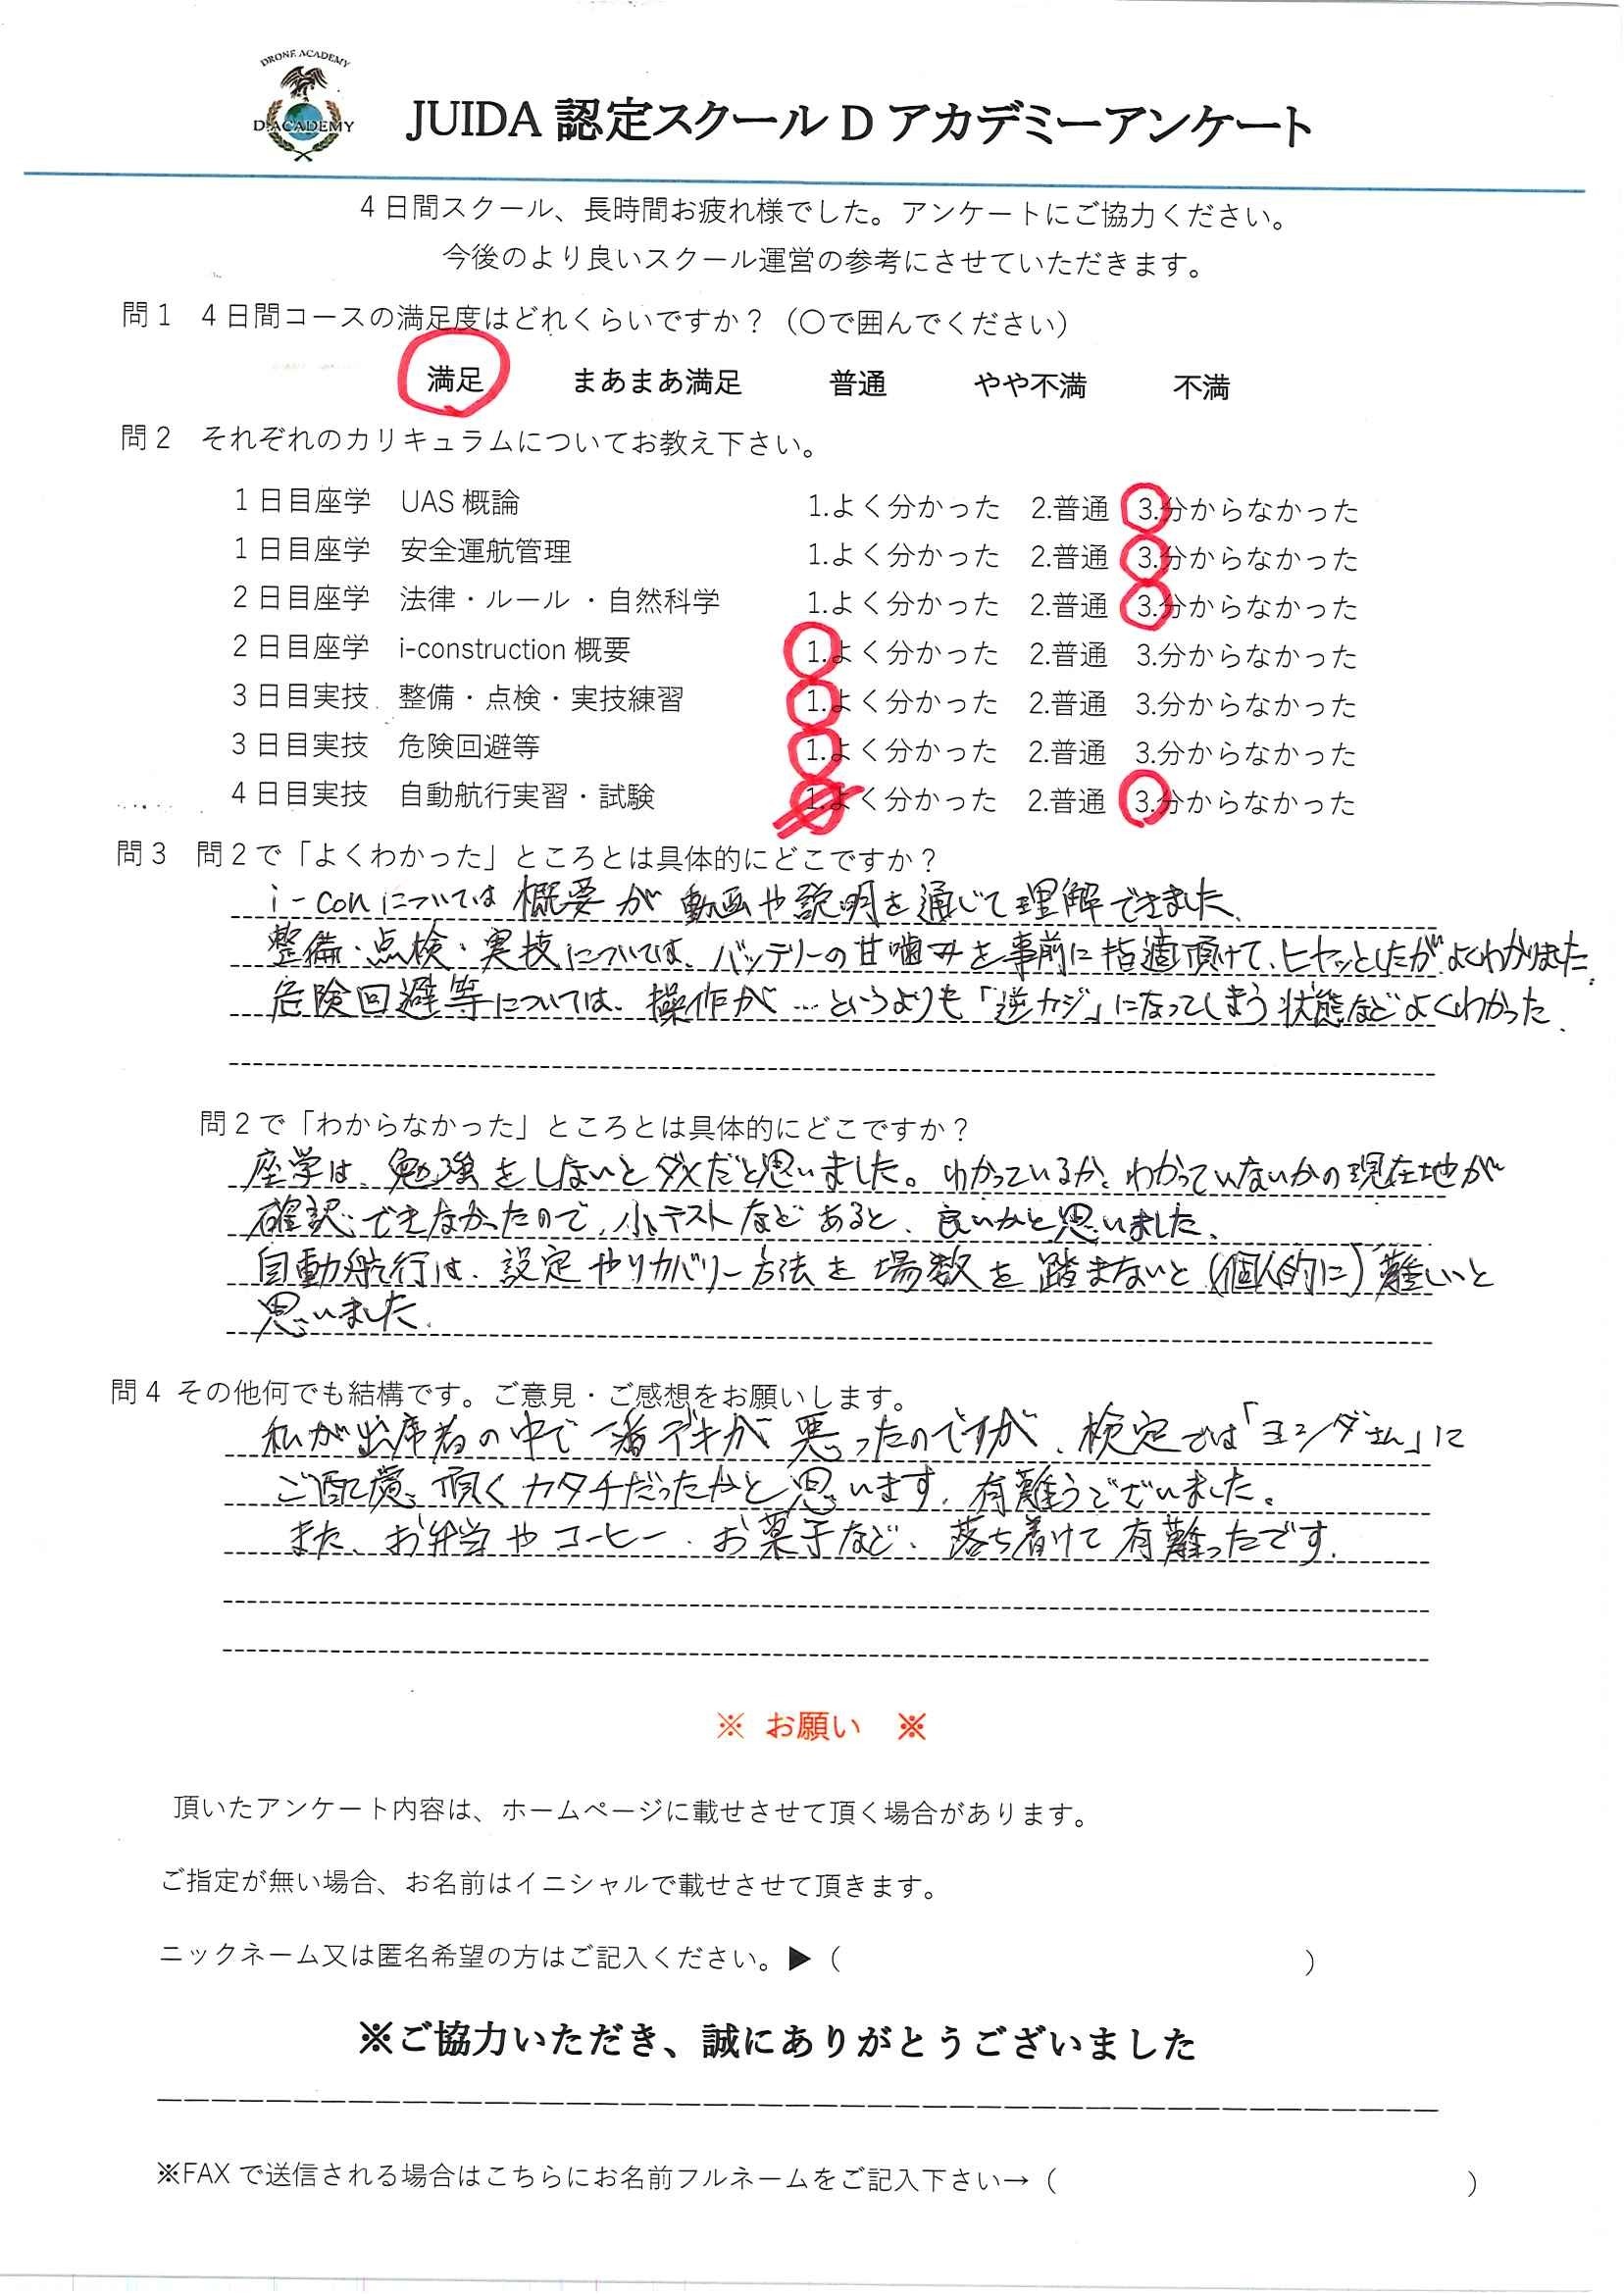 DRONE ACADEMY
D.ACADEMY
JUIDA 認定スクール D アカデミーアンケート
4 日間スクール、長時間お疲れ様でした。アンケートにご協力ください。
今後のより良いスクール運営の参考にさせていただきます。
問1 4日間コースの満足度はどれくらいですか?(〇で囲んでください)
満足 まあまあ満足 普通 やや不満 不満
問2 それぞれのカリキュラムについてお教え下さい。
1日目座学 UAS 概論 1.よく分かった 2.普通 3.分からなかった
1日目座学 安全運航管理 1.よく分かった 2.普通 3.分からなかった
2日目座学 法律・ルール・自然科学 1.よく分かった 2.普通 3.分からなかった
2日目座学 i-construction 概要 1.よく分かった 2.普通 3.分からなかった
3日目実技 整備・点検・実技練習 1.よく分かった 2.普通 3.分からなかった
3日目実技 危険回避等 1.よく分かった 2.普通 3.分からなかった
4日目実技 自動航行実習・試験 1.よく分かった 2.普通 3.分からなかった
問3 問2で「よくわかった」ところとは具体的にどこですか?
i-conについては概要が動画や説明を通じて理解できました。
整備・点検・実技については、バッテリーの甘噛みを事前に指適頂けて、ヒヤッとしたがよくわかりました。
危険回避等については、操作が…というよりも「逆カジ」になってしまう状態などよくわかった。
問2で「わからなかった」ところとは具体的にどこですか?
座学は、勉強をしないとダメだと思いました。わかっているか、わかっていないかの現在地が
確認できなかったので、小テストなどあると、良いかと思いました。
自動航行は、設定やリカバリー方法を場数を踏まないと(個人的に)難しいと
思いました。
問4 その他何でも結構です。ご意見・ご感想をお願いします。
私が出席者の中で一番デキが悪ったのですが、検定では「ヨンダさん」に
ご配慮頂くカタチだったかと思います。有難うございました。
また、お弁当やコーヒー、お菓子など、落ち着けて有難ったです。
※ お願い ※
頂いたアンケート内容は、ホームページに載せさせて頂く場合があります。
ご指定が無い場合、お名前はイニシャルで載せさせて頂きます。
ニックネーム又は匿名希望の方はご記入ください。▶( )
※ご協力いただき、誠にありがとうございました
※FAX で送信される場合はこちらにお名前フルネームをご記入下さい→( )